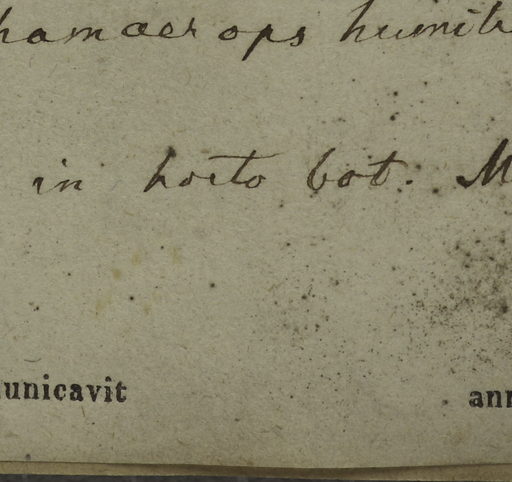 hamaerops humili
in horto bot. M
unicavit
ann